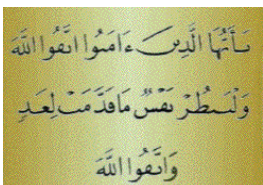 يَٰٓأَيُّهَا الَّذِينَ ءَامَنُوا اتَّقُوا اللَّهَ
وَلْتَنظُرْ نَفْسٌ مَا قَدَّمَتْ لِغَدٍ
وَاتَّقُوا اللَّهَ